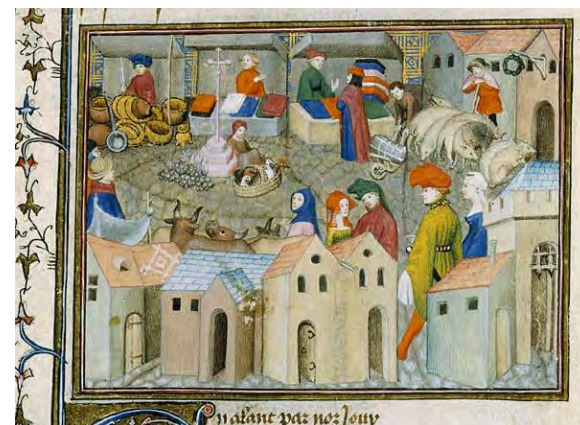 n alant par noz Jour